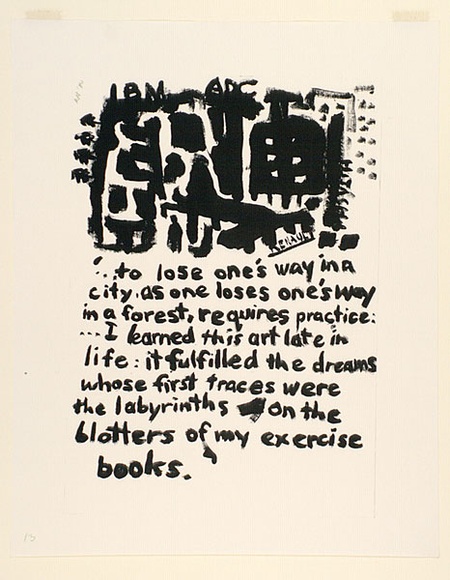 IBM ABC
RENAULT
"..to lose one's way in a
city, as one loses one's way
in a forest, requires practice:
... I learned this art late in
life: it fulfilled the dreams
whose first traces were
the labyrinths on the
blotters of my exercise
books.
13